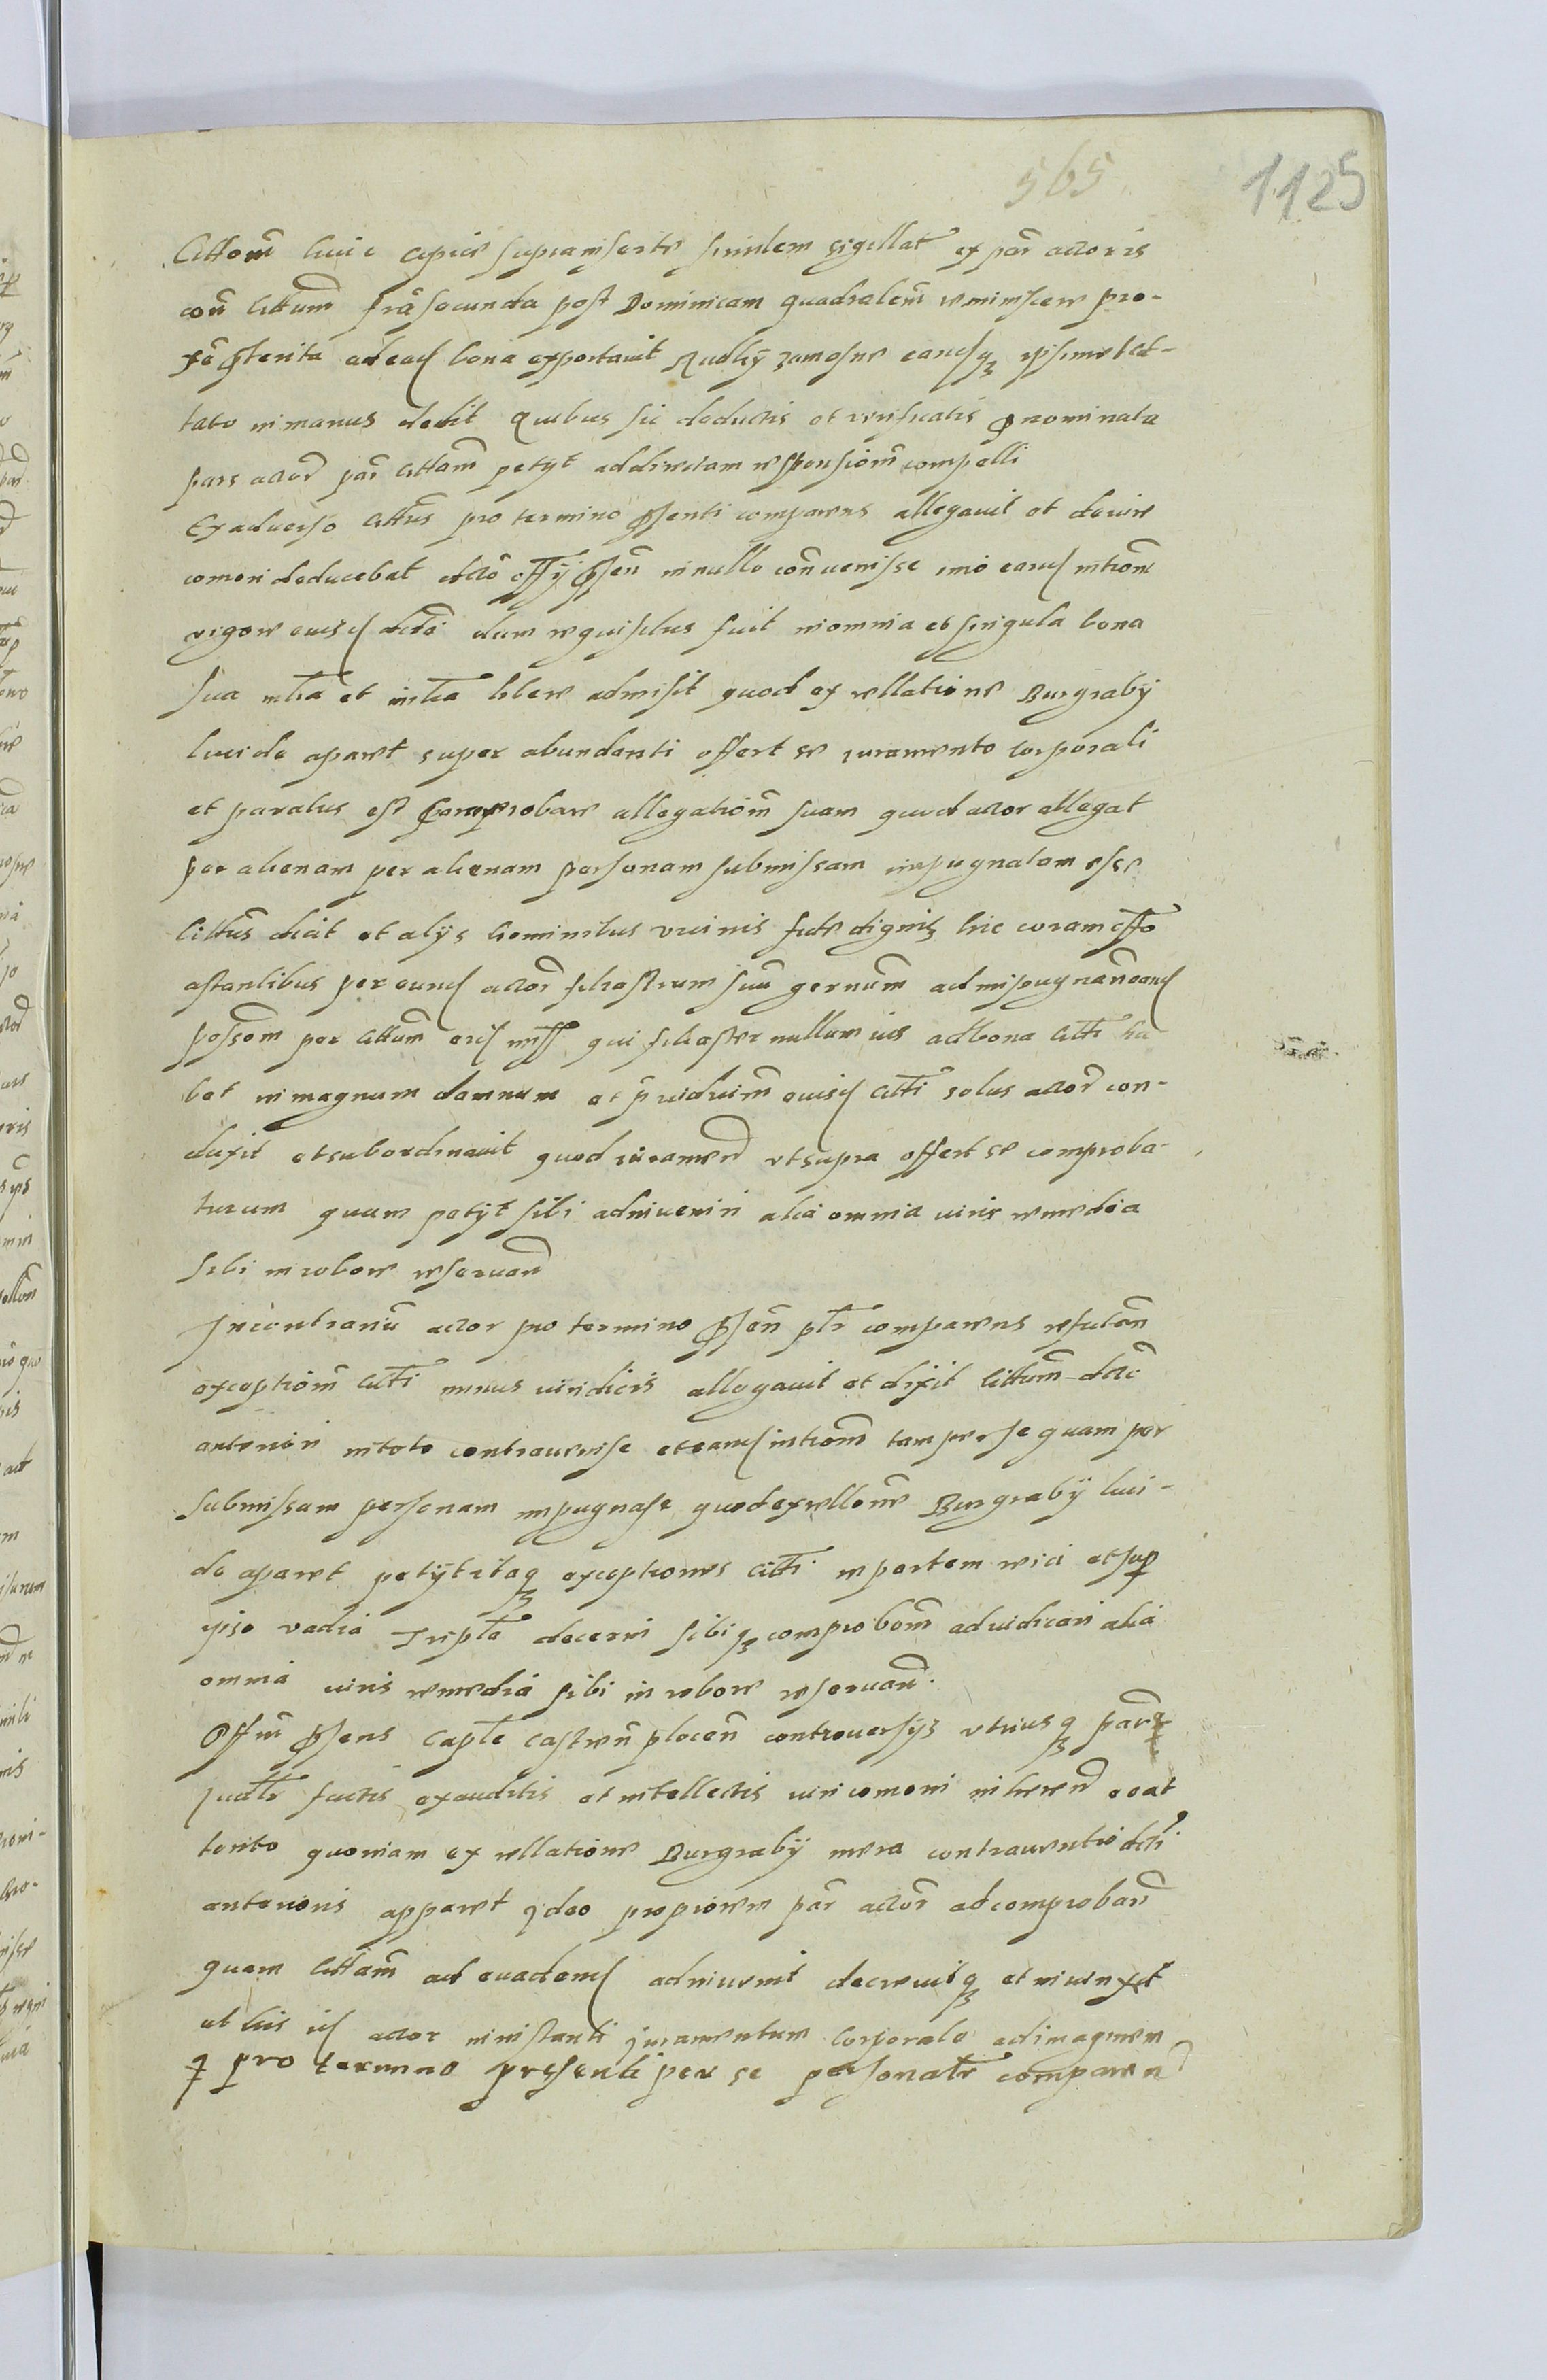 565
1125
Citt̃oñe huic copie suprainserte similem sigillat̃ ex par̃ actoris
coñ citt̃um fr̃ia secunda post Dominicam quadralem̃ reminiscere pro-
xe p̃terita ad eade bona exportauit Rudky zamosne eandq ipsimet Cit-
tato in manus dedit Quibus sic deductis et verificatis p̃nominata
pars actor̃ par̃ Citt̃am petyt ad directam responsionem̃ compelli
Ex aduerso Citt̃us pro termino p̃senti comparens allegauit et de iure
comoni deducebat dctõ offy p̃sen̄ in nullo con̄uenisse imo eand intrõm
vigore euisd dctĩ dum requisitus fuit in omnia et singula bona
sua mtl̃a et intl̃a libere admisit quod ex rellatione Burgraby
lucide aparet super abundanti offert se iuramento corporali
et paratus est comprobare allegatiom̃ suam quod actor allegat
per alienam per alienam personam submissam impugnatam esse
Citt̃us dicit et alys hominibus vicinis fide dignis hic coram offõ
astantibus per eund actor̃ filiastrum suũ gernum̃ ad impugnan̄ eand
possom̃ per Citt̃um eid miss qui filiaster nullum ius ad bona Citt̃i ha
bet in magnum damnum et p̃iudicium̃ euisd Citt̃i solus actor̃ con-
duxit et subordinauit quod iuramen̄ vt supra offert se comproba-
turum quum petyt sibi adinueniri alia omnia iuris remedia
sibi in robore reseruan̄
In contrarium̃ actor pro termino p̃sen̄ pt̃r comparens refutan̄
exceptiom̃ Citt̃i minus iuridicis allegauit et dixit Citt̃um dctõ
anteriori in toto contrauenisse et eand intrõm tam per se quam per
submissam personam impugnasse quod ex rellõne Burgraby luci-
de aparet petyt itaq exceptiones Citt̃i in partem reici et sup
ipso vadia Tripla decerni sibiq comprobom̃ adiudicari alia
omnia iuris remedia sibi in robore reseruan̄.
Offm̃ p̃sens Capl̃e castren̄ plocen̄ controuersys vtriusq par̃
iudtr̃ factis exauditis et intellectis iuri comoni inheren̄ eo at
tento quoniam ex rellatione Burgraby mera contrauentio dctĩ
anterioris apparet Ideo propiorem par̃ actor̃ ad comproban̄
quam Citt̃am ad euadend adinuenit decreuitq et iniunxit
ut his id actor in instanti Juramentum Corporale ad imaginem
q pro termino presenti per se personalr̃ comparen̄